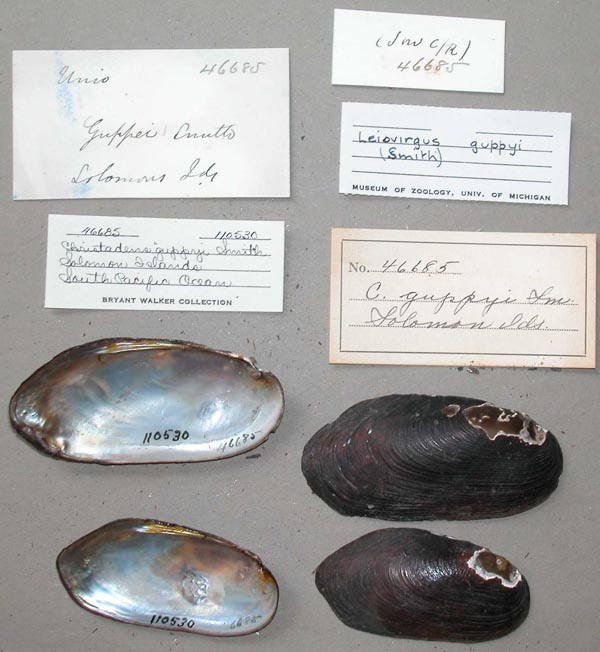 Unio 46685
Guppei Smith
Solomons Ids
(Jno C/R)
46685
Leiovirgus guppyi
(Smith)
MUSEUM OF ZOOLOGY, UNIV. OF MICHIGAN
46685 110530
Christadens guppyi Smith
Solomon Islands
South Pacific Ocean
BRYANT WALKER COLLECTION
No. 46685
C. guppyi Sm.
Solomon Ids.
110530
46685
110530
46685